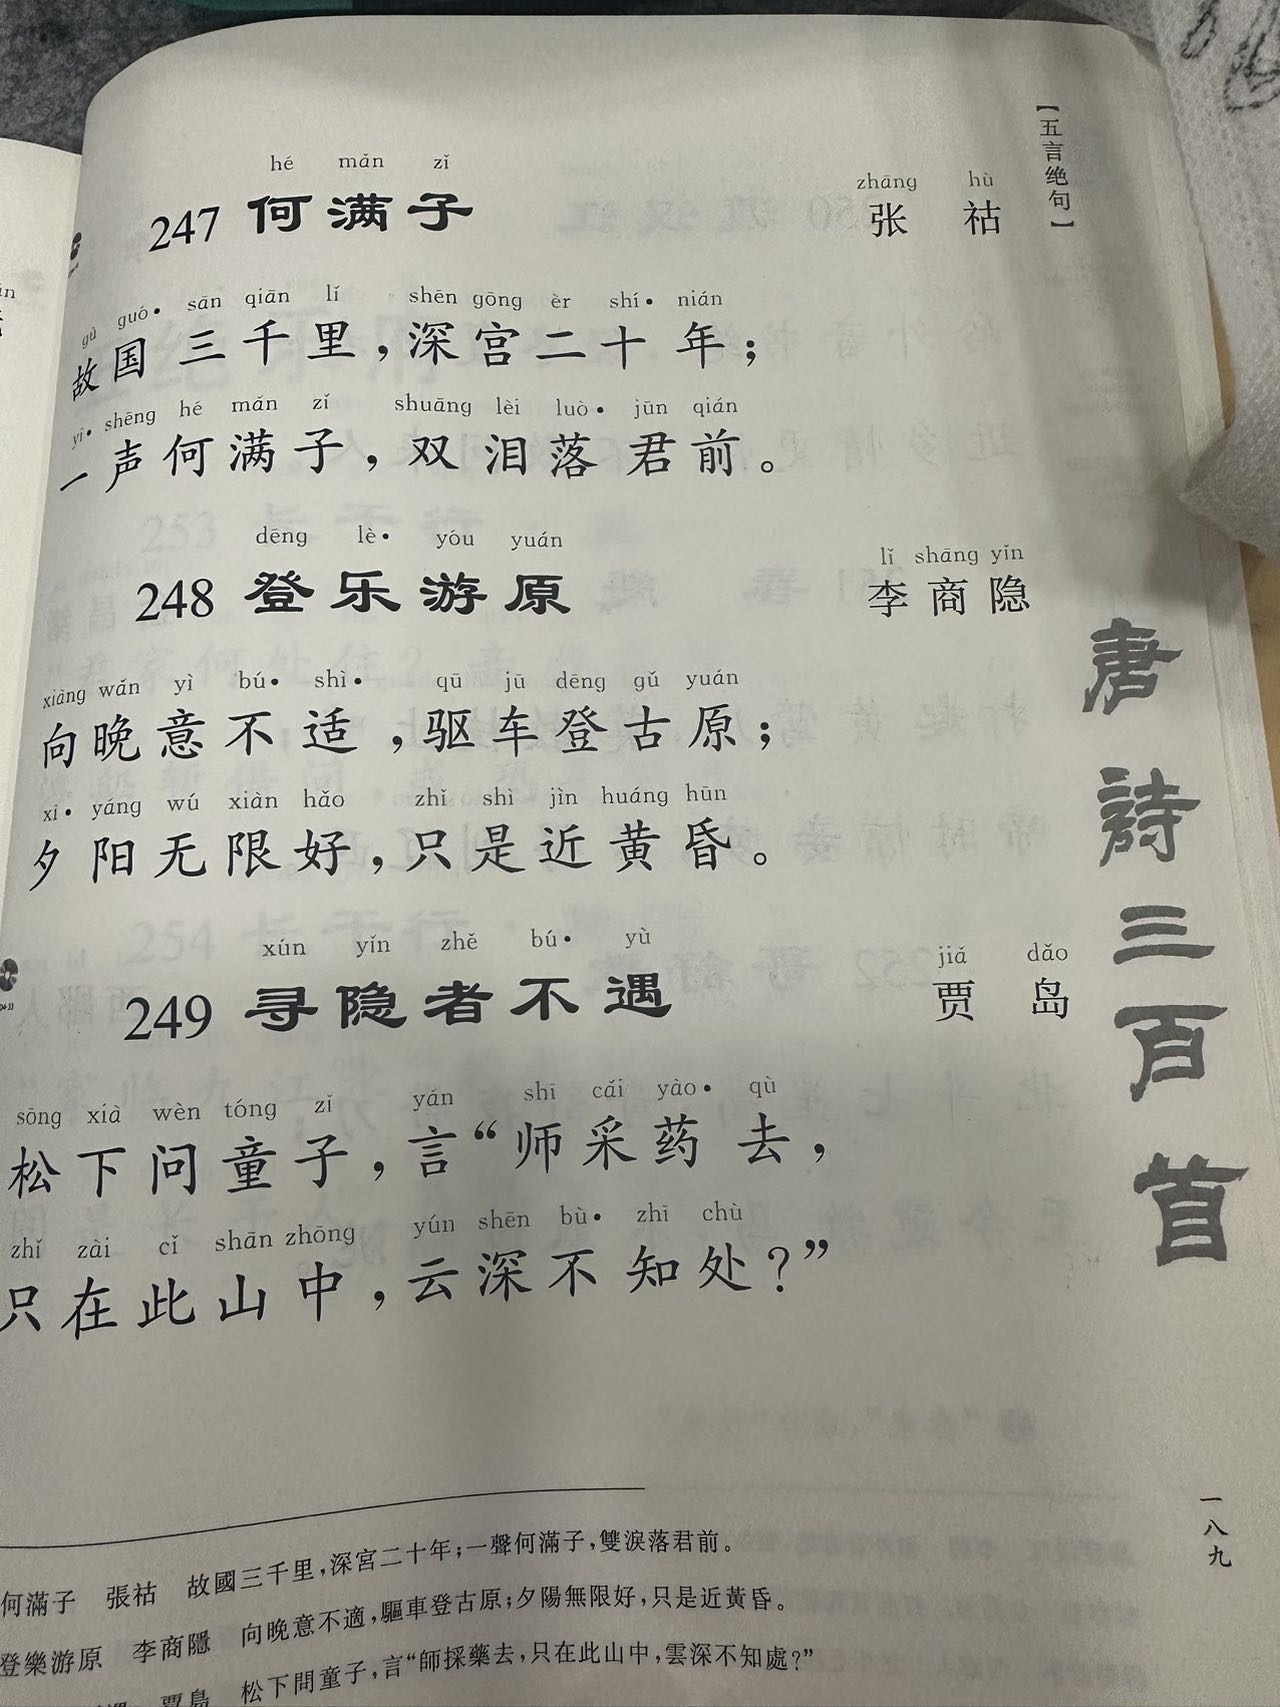 【五言绝句】
hé mǎn zǐ
247 何满子
zhāng hù
张 祜
gù guó• sān qiān lǐ shēn gōng èr shí• nián
故国三千里，深宫二十年；
yī• shēng hé mǎn zǐ shuāng lèi luò• jūn qián
一声何满子，双泪落君前。
dēng lè• yóu yuán
248 登乐游原
lǐ shāng yǐn
李商隐
xiàng wǎn yì bú• shì• qū jū dēng gǔ yuán
向晚意不适，驱车登古原；
xī• yáng wú xiàn hǎo zhǐ shì jìn huáng hūn
夕阳无限好，只是近黄昏。
xún yǐn zhě bú• yù
249 寻隐者不遇
jiá dǎo
贾 岛
sōng xià wèn tóng zǐ yán shī cǎi yào• qù
松下问童子，言“师采药去，
zhǐ zài cǐ shān zhōng yún shēn bù• zhī chù
只在此山中，云深不知处？”
唐詩三百首
一八九
何滿子 張祜 故國三千里，深宮二十年；一聲何滿子，雙淚落君前。
登樂游原 李商隱 向晚意不適，驅車登古原；夕陽無限好，只是近黃昏。
賈島 松下問童子，言“師採藥去，只在此山中，雲深不知處？”